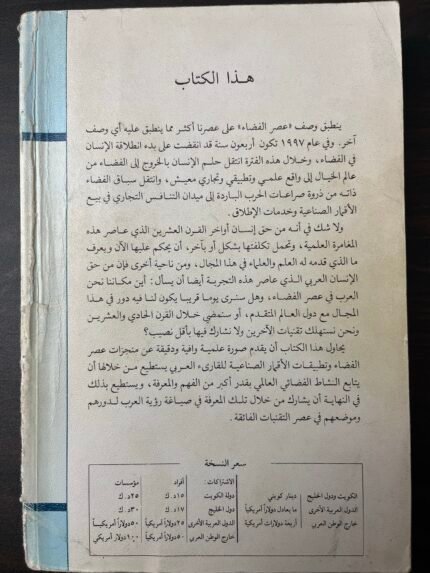 هذا الكتاب
ينطبق وصف «عصر الفضاء» على عصرنا أكثر مما ينطبق عليه أي وصف
آخر. وفي عام ١٩٩٧ تكون أربعون سنة قد انقضت على بدء انطلاقة الإنسان
في الفضاء، وخلال هذه الفترة انتقل حلم الإنسان بالخروج إلى الفضاء من
عالم الخيال إلى واقع علمي وتطبيقي وتجاري معيش، وانتقل سباق الفضاء
ذاته من ذروة صراعات الحرب الباردة إلى ميدان التنافس التجاري في بيع
الأقمار الصناعية وخدمات الإطلاق.
ولا شك في أنه من حق إنسان أواخر القرن العشرين الذي عاصر هذه
المغامرة العلمية، وتحمل تكلفتها بشكل أو بآخر، أن يحكم عليها الآن ويعرف
ما الذي قدمه له العلم والعلماء في هذا المجال، ومن ناحية أخرى فإن من حق
الإنسان العربي الذي عاصر هذه التجربة أيضا أن يسأل: أين مكاننا نحن
العرب في عصر الفضاء، وهل سنرى يوما قريبا يكون لنا فيه دور في هذا
المجال مع دول العالم المتقدم، أو سنمضي خلال القرن الحادي والعشرين
ونحن نستهلك تقنيات الآخرين ولا نشارك فيها بأقل نصيب؟
يحاول هذا الكتاب أن يقدم صورة علمية وافية ودقيقة عن منجزات عصر
الفضاء وتطبيقات الأقمار الصناعية للقارىء العربي يستطيع من خلالها أن
يتابع النشاط الفضائي العالمي بقدر أكبر من الفهم والمعرفة، ويستطيع بذلك
في النهاية أن يشارك من خلال تلك المعرفة في صياغة رؤية العرب لدورهم
وموضعهم في عصر التقنيات الفائقة.
سعر النسخة
الكويت ودول الخليج دينار كويتي
الدول العربية الأخرى ما يعادل دولاراً أمريكياً
خارج الوطن العربي أربعة دولارات أمريكية
الاشتراكات: أفراد مؤسسات
دولة الكويت ١٥د.ك ٢٥د.ك
دول الخليج ١٧د.ك ٣٠د.ك
الدول العربية الأخرى ٢٥دولاراً أمريكياً ٥٠دولاراً أمريكياً
خارج الوطن العربي ٥٠دولاراً أمريكياً ١٠٠دولار أمريكي